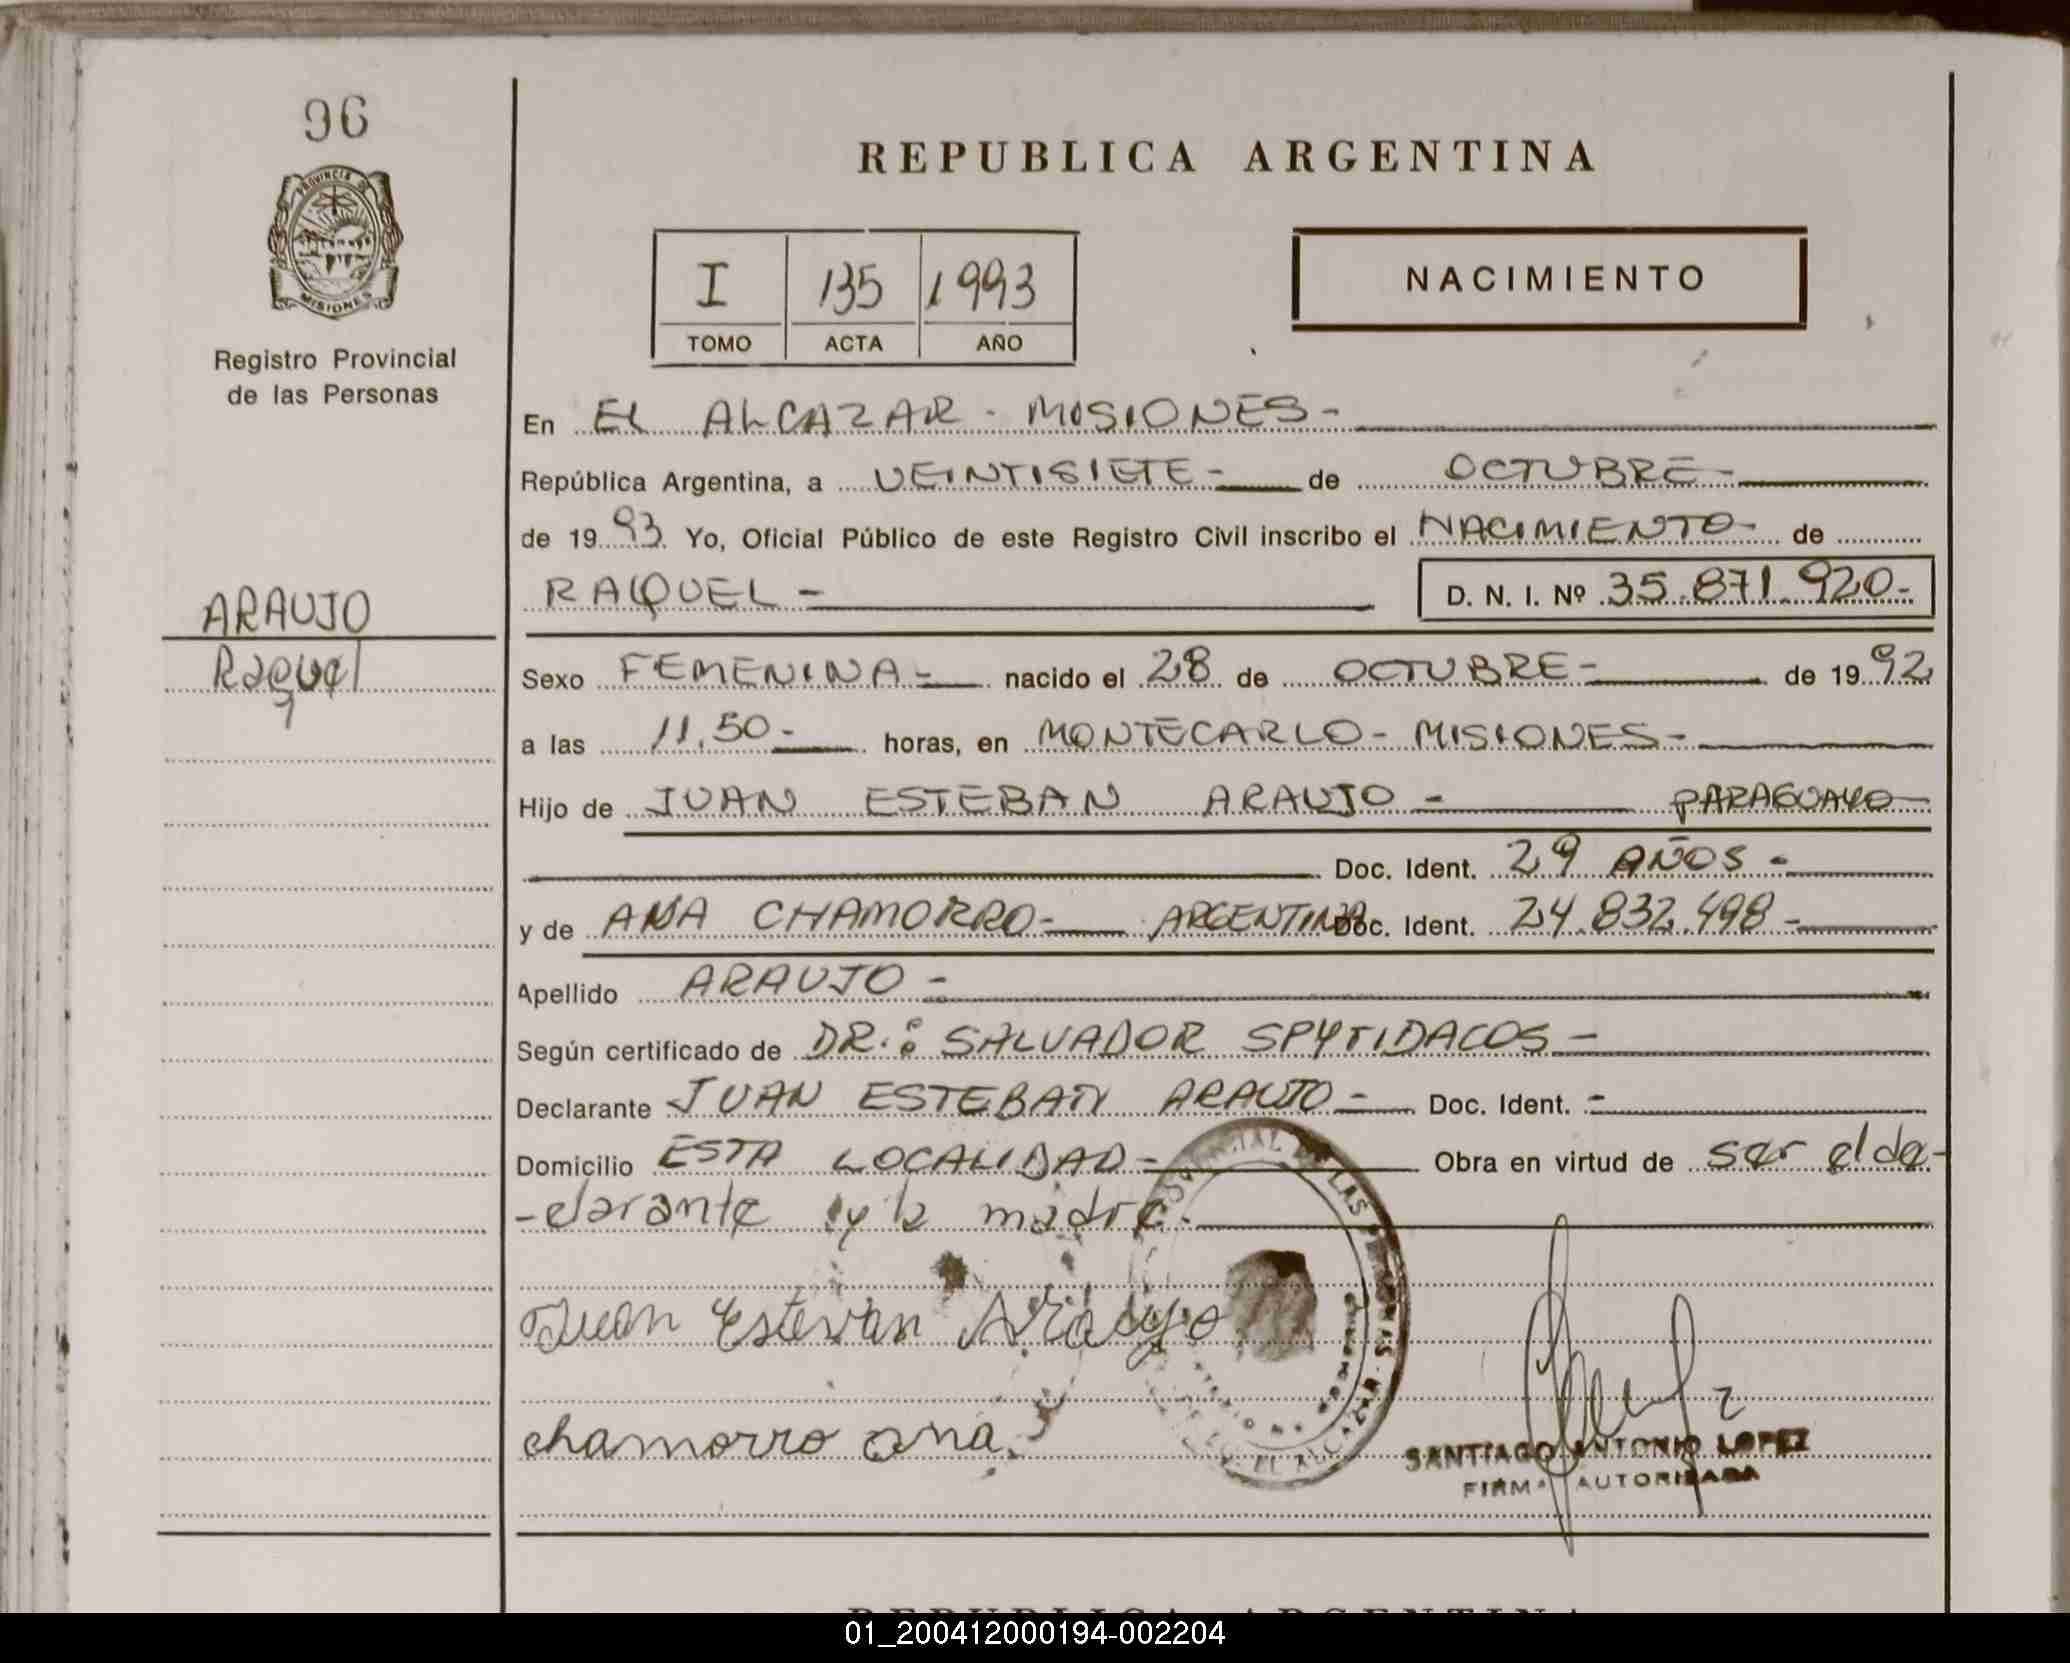 96
PROVINCIA DE
MISIONES
Registro Provincial
de las Personas
ARAUJO
Raquel
REPUBLICA ARGENTINA
I 135 1993
TOMO ACTA AÑO
NACIMIENTO
En EL ALCAZAR - MISIONES-
República Argentina, a VEINTISIETE- de OCTUBRE-
de 1993. Yo, Oficial Público de este Registro Civil inscribo el NACIMIENTO- de
RAQUEL- D. N. I. Nº 35.871.920-
Sexo FEMENINA- nacido el 28 de OCTUBRE- de 1992
a las 11,50- horas, en MONTECARLO- MISIONES-
Hijo de JUAN ESTEBAN ARAUJO- PARAGUAYO
Doc. Ident. 29 AÑOS-
y de ANA CHAMORRO- ARGENTINA Doc. Ident. 24.832.498-
Apellido ARAUJO-
Según certificado de DR.: SALVADOR SPYTIDACOS-
Declarante JUAN ESTEBAN ARAUJO- Doc. Ident. -
Domicilio ESTA LOCALIDAD- Obra en virtud de ser el de-
-clarante y la madre.
Juan Estevan Araujo
chamorro ana
SANTIAGO ANTONIO LOPEZ
FIRMA AUTORIZADA
01_200412000194-002204